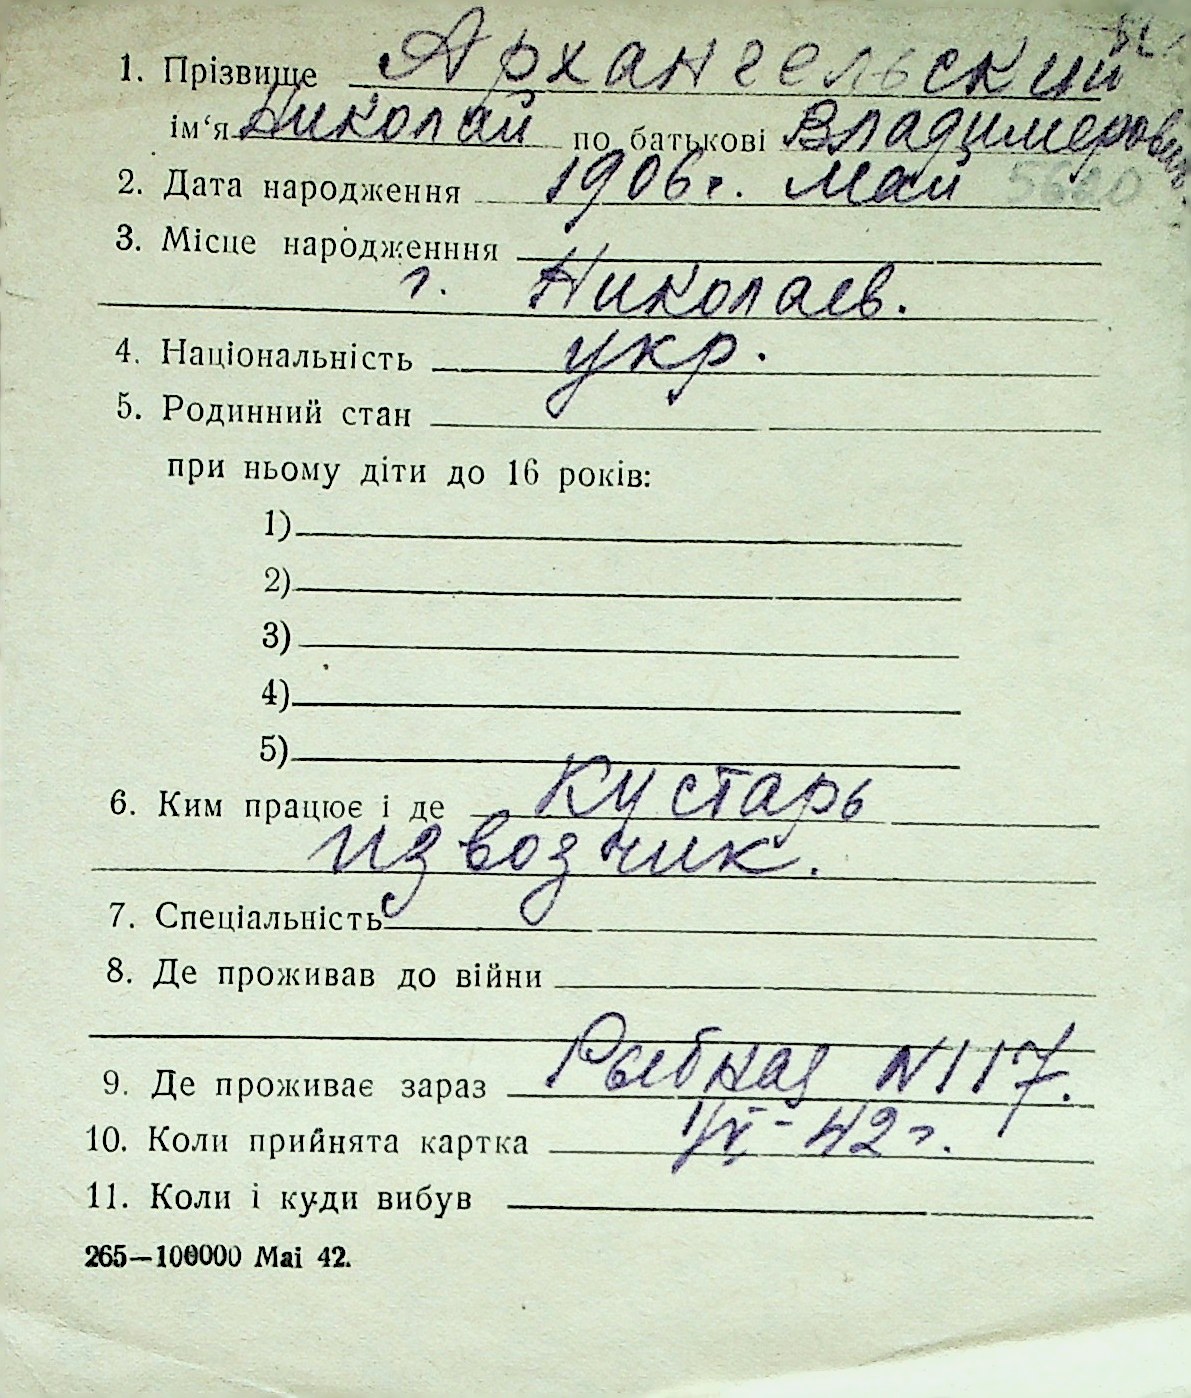 1. Прізвище Архангельский
ім‘я Николай по батькові Владимерович
2. Дата народження 1906 г. май 5620
3. Місце народженння
г. Николаев.
4. Національність укр.
5. Родинний стан
при ньому діти до 16 років:
1)
2)
3)
4)
5)
6. Ким працює і де Кустарь
извозчик.
7. Спеціальність
8. Де проживав до війни
9. Де проживає зараз Рыбная N 117.
10. Коли прийнята картка 1/VI - 42 г.
11. Коли і куди вибув
265—100000 Mai 42.